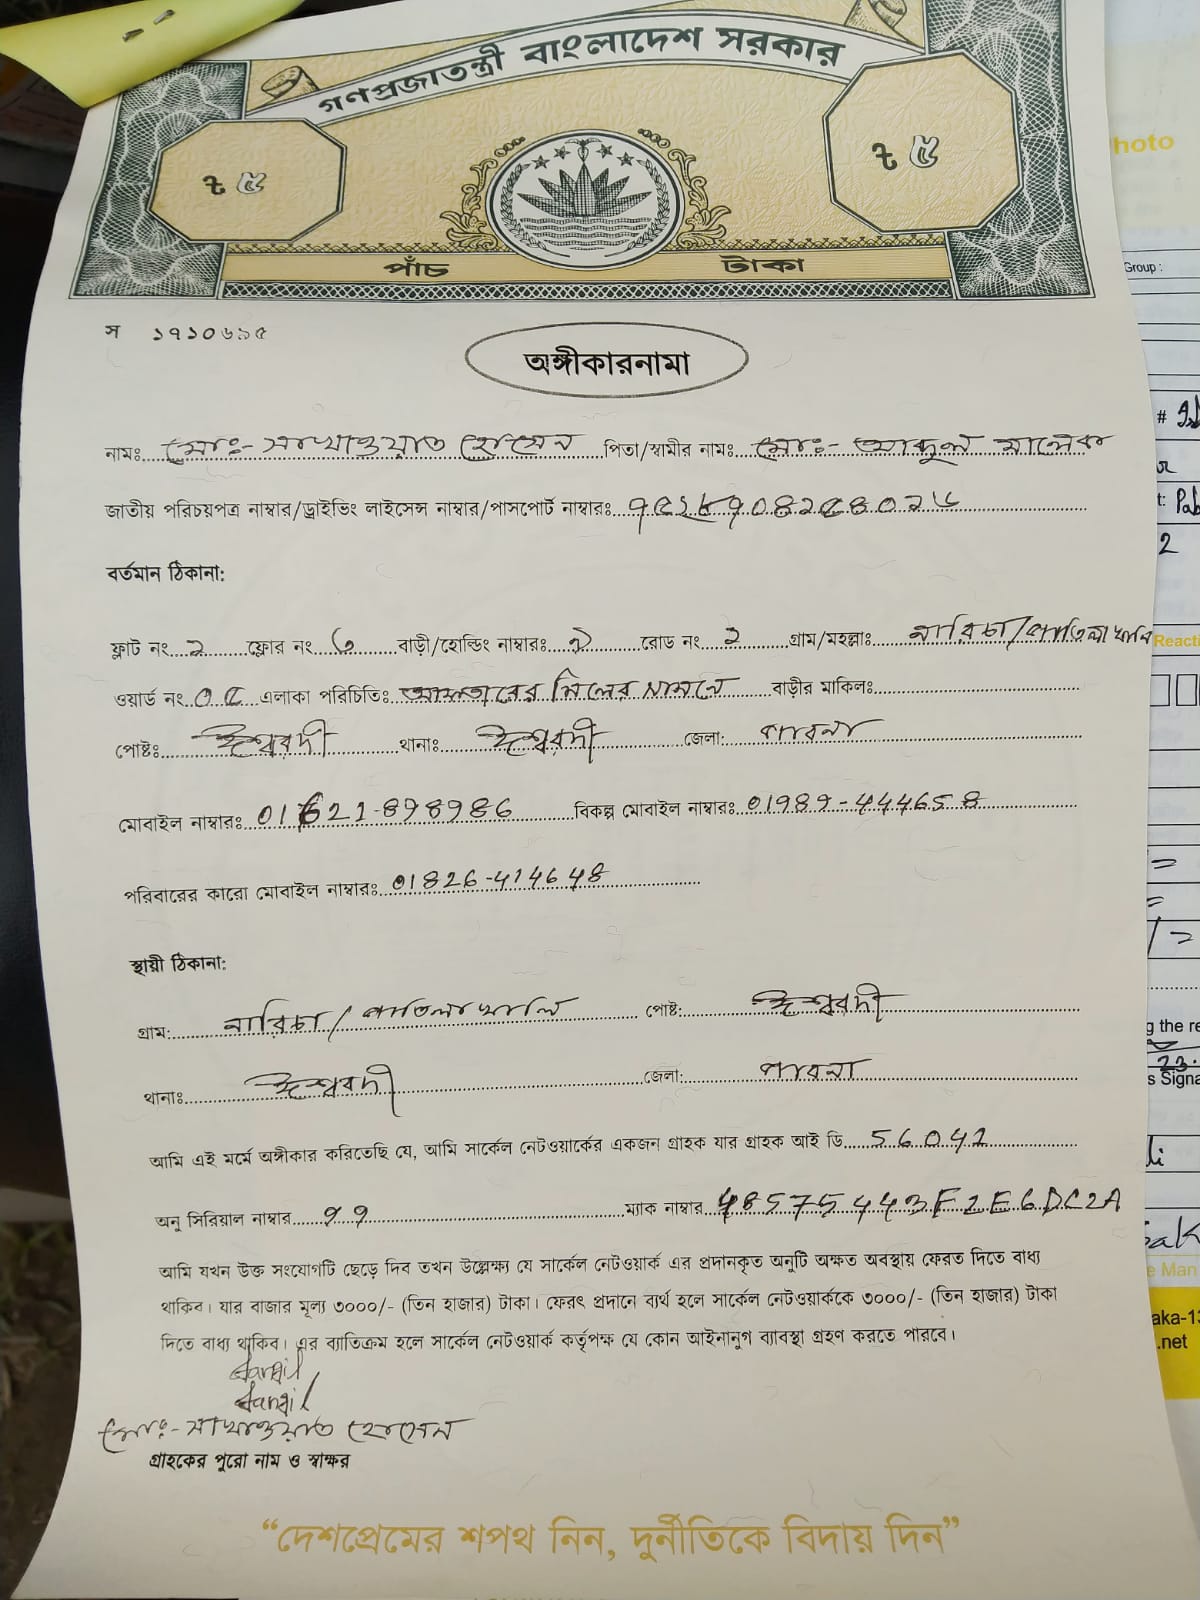 গণপ্রজাতন্ত্রী বাংলাদেশ সরকার
৳ ৫
৳ ৫
পাঁচ টাকা
স ১৭১০৬৯৫
অঙ্গীকারনামা
নামঃ মোঃ- সাখাওয়াত হোসেন পিতা/স্বামীর নাম: মোঃ- আব্দুল মালেক
জাতীয় পরিচয়পত্র নাম্বার/ড্রাইভিং লাইসেন্স নাম্বার/পাসপোর্ট নাম্বারঃ
বর্তমান ঠিকানা:
ফ্লাট নং ২ ফ্লোর নং ৩ বাড়ী/হোল্ডিং নাম্বারঃ ২ রোড নং ২ গ্রাম/মহল্লাঃ নারিচা/পাতিলাখালি
ওয়ার্ড নং ০৫ এলাকা পরিচিতি: মিলের সামনে বাড়ীর মালিক:
পোষ্টঃ ঈশ্বরদী থানাঃ ঈশ্বরদী জেলা: পাবনা
মোবাইল নাম্বারঃ 01621-898986 বিকল্প মোবাইল নাম্বারঃ 01989-444658
পরিবারের কারো মোবাইল নাম্বারঃ 01826-414648
স্থায়ী ঠিকানা:
গ্রাম: নারিচা/পাতিলাখালি পোষ্ট: ঈশ্বরদী
থানাঃ ঈশ্বরদী জেলা: পাবনা
আমি এই মর্মে অঙ্গীকার করিতেছি যে, আমি সার্কেল নেটওয়ার্কের একজন গ্রাহক যার গ্রাহক আই ডি 56042
অনু সিরিয়াল নাম্বার ৭৭ ম্যাক নাম্বার 48575443F2E6DC2A
আমি যখন উক্ত সংযোগটি ছেড়ে দিব তখন উল্লেক্ষ্য যে সার্কেল নেটওয়ার্ক এর প্রদানকৃত অনুটি অক্ষত অবস্থায় ফেরত দিতে বাধ্য
থাকিব। যার বাজার মূল্য ৩০০০/- (তিন হাজার) টাকা। ফেরৎ প্রদানে ব্যর্থ হলে সার্কেল নেটওয়ার্ককে ৩০০০/- (তিন হাজার) টাকা
দিতে বাধ্য থাকিব। এর ব্যাতিক্রম হলে সার্কেল নেটওয়ার্ক কর্তৃপক্ষ যে কোন আইনানুগ ব্যাবস্থা গ্রহণ করতে পারবে।
মোঃ- সাখাওয়াত হোসেন
গ্রাহকের পুরো নাম ও স্বাক্ষর
“দেশপ্রেমের শপথ নিন, দুর্নীতিকে বিদায় দিন”
hoto
Group :
Reacti
g the re
s Signa
e Man
aka-13
.net